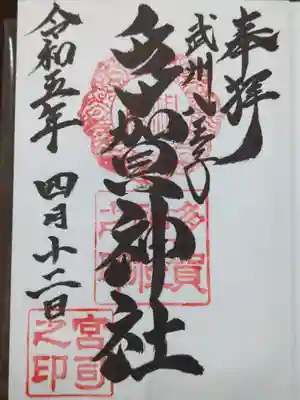 奉拝
武州八王子
多賀神社
令和五年
四月十二日
多賀
神社
宮司
之印